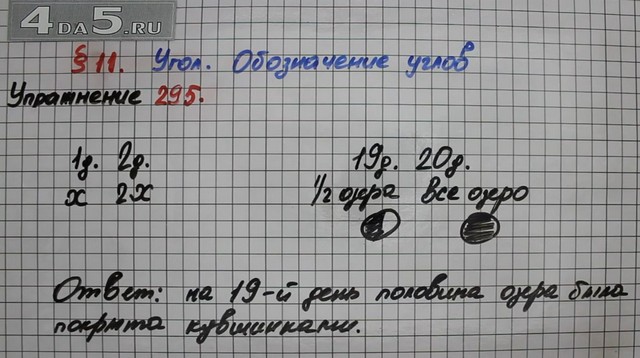 4DA5.RU
§ 11. Угол. Обозначение углов
Упражнение 295.
1д. 2д. 19д. 20д.
x 2x 1/2 озера все озеро
Ответ: на 19-й день половина озера была
покрыта кувшинками.